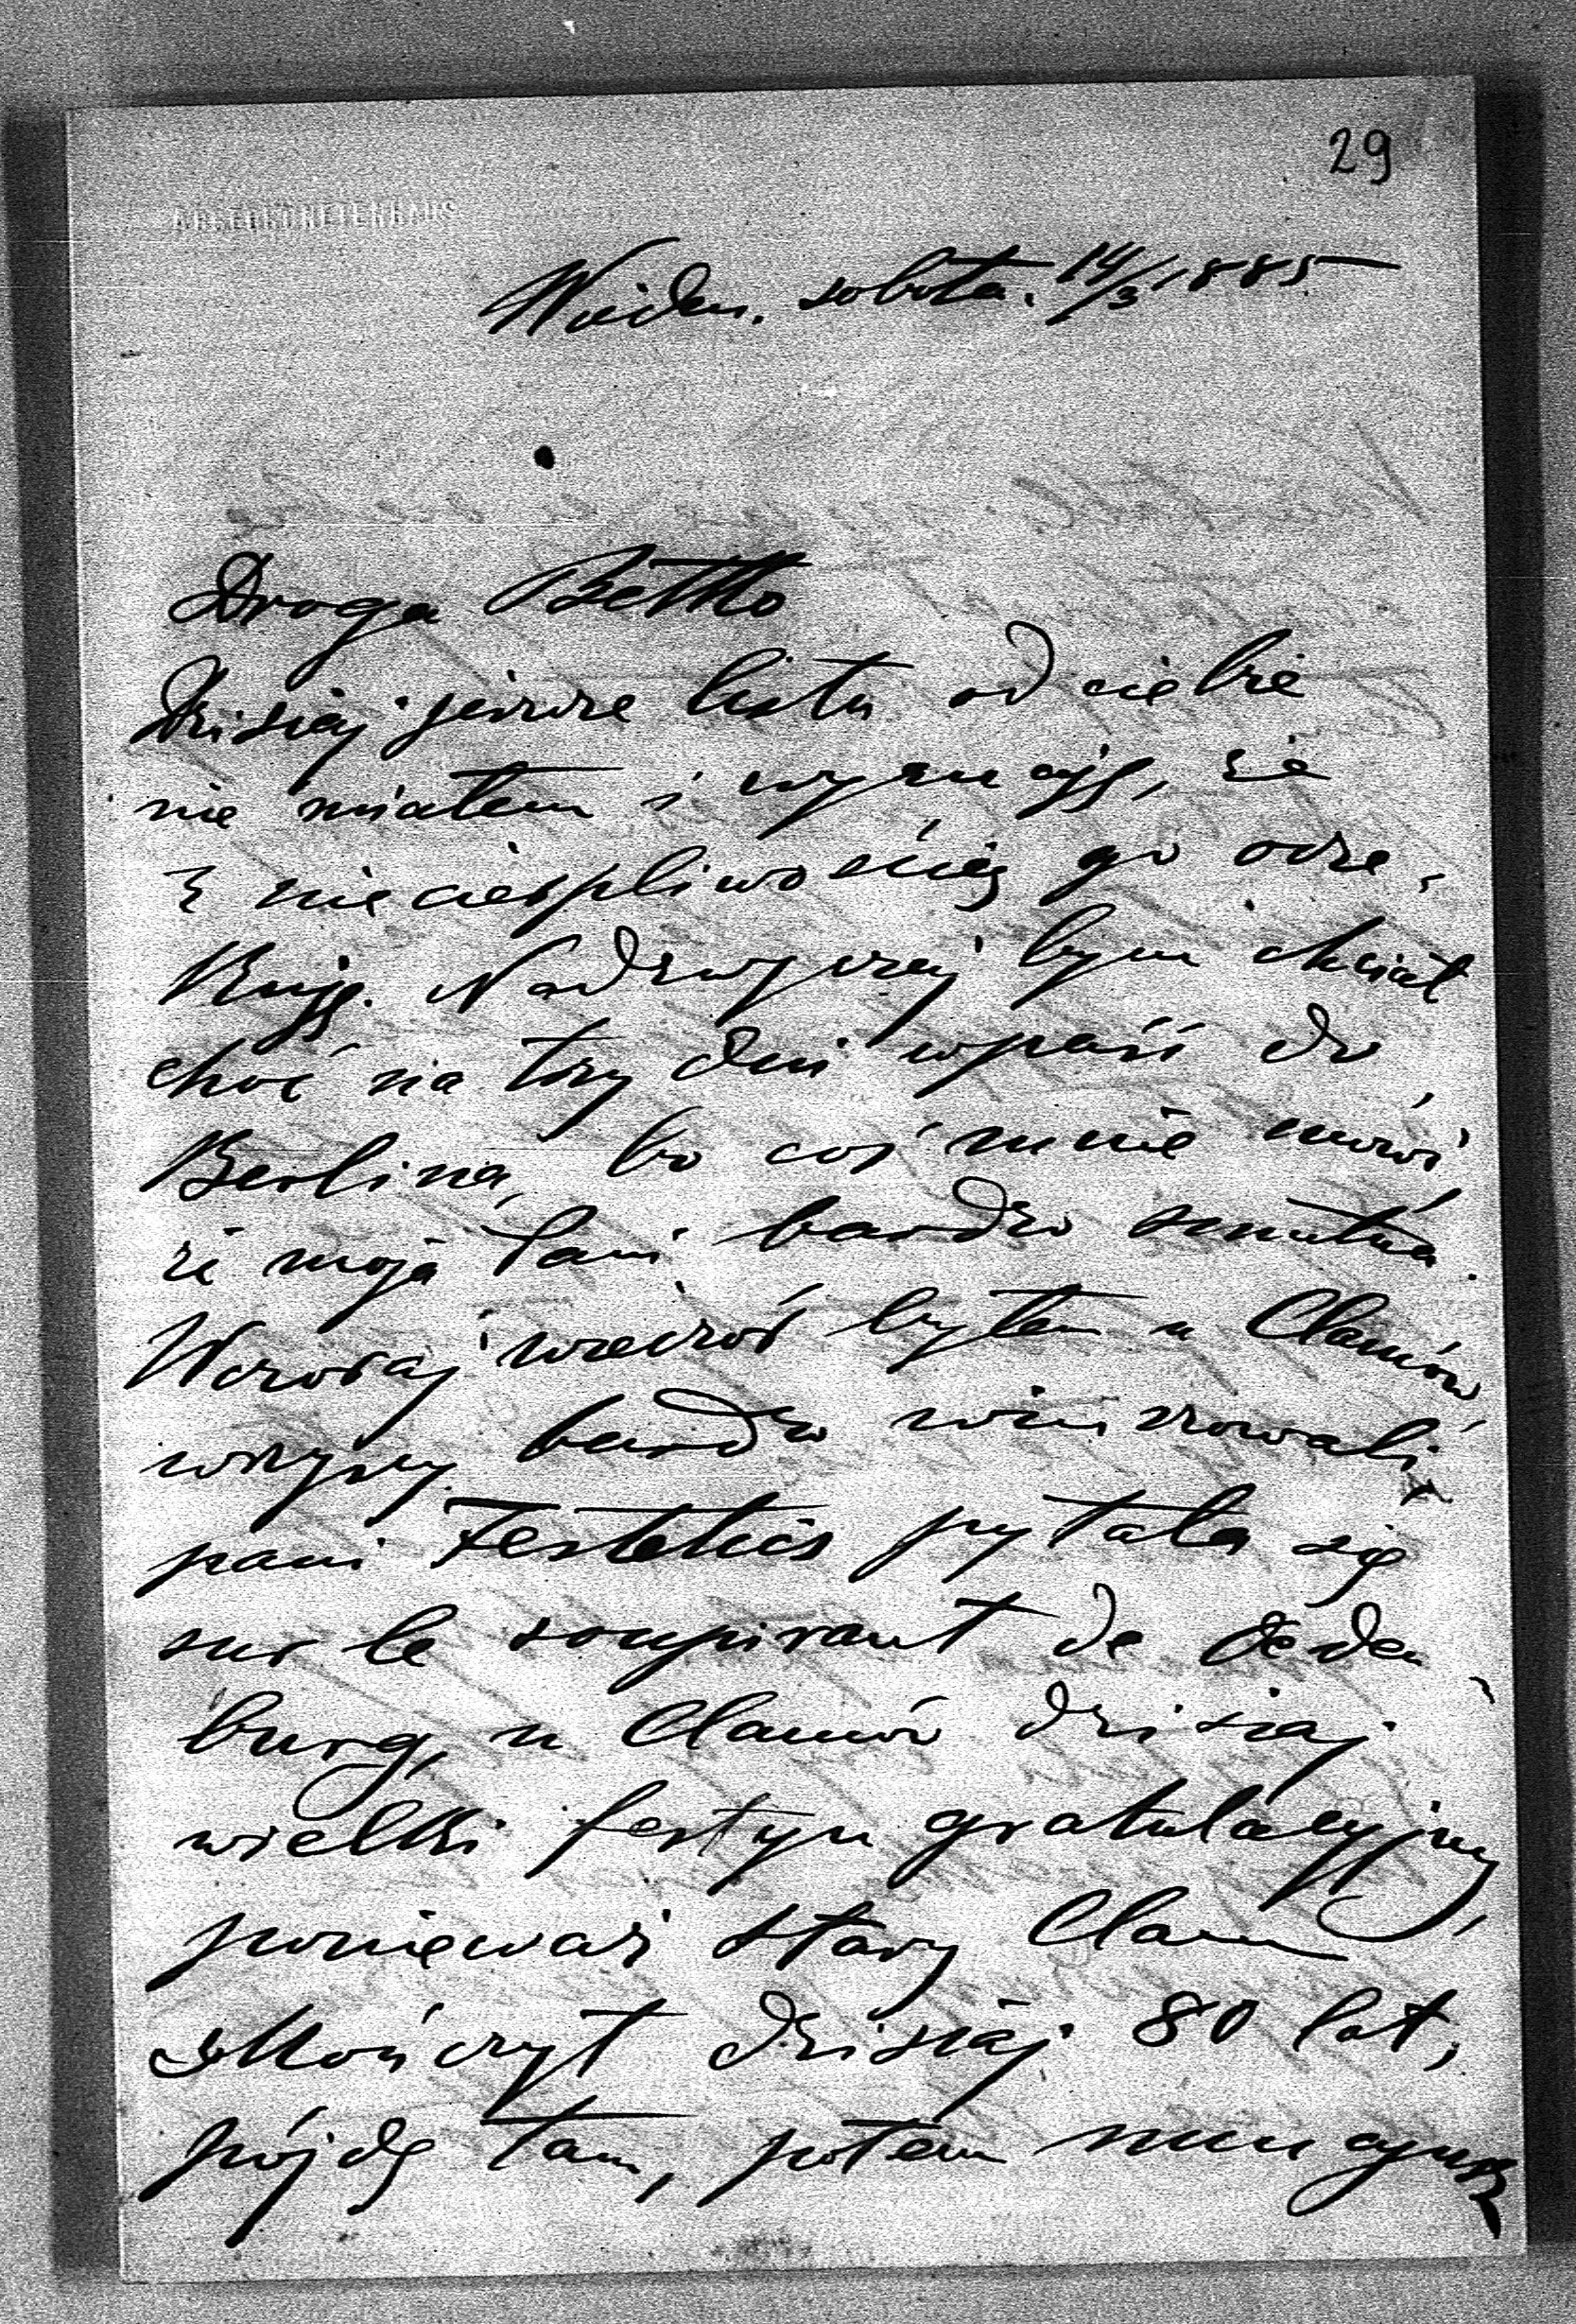 29
ABGEORDNETENHAUS
Wiedeń. sobota. 14/3 1885
Droga Betko
Dzisiaj jeszcze listu od ciebie
nie miałem i wyznaję, że
z niecierpliwością go ocze-
kuję. Nadzwyczaj bym chciał
choć na trzy dni wpaść do
Berlina, bo coś mnie mówi
że moja Pani bardzo smutna.
Wczoraj wieczór byłem u Clamów,
wszyscy bardzo winszowali,
pani Festetics pytała się
sur le soupirant de Oeden-
burg, u Clamów dzisiaj
wielki festyn gratulacyjny,
ponieważ stary Clam
skończył dzisiaj 80 lat,
pójdę tam, potem